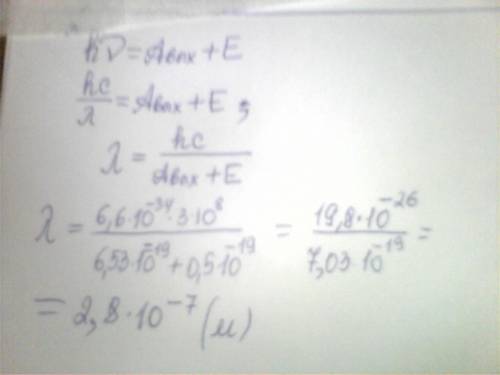 hν = Aвых + E
hc/λ = Aвых + E ;
λ = hc/(Aвых + E)
λ = (6,6·10⁻³⁴·3·10⁸)/(6,53·10⁻¹⁹ + 0,5·10⁻¹⁹) = (19,8·10⁻²⁶)/(7,03·10⁻¹⁹) =
= 2,8·10⁻⁷ (м)